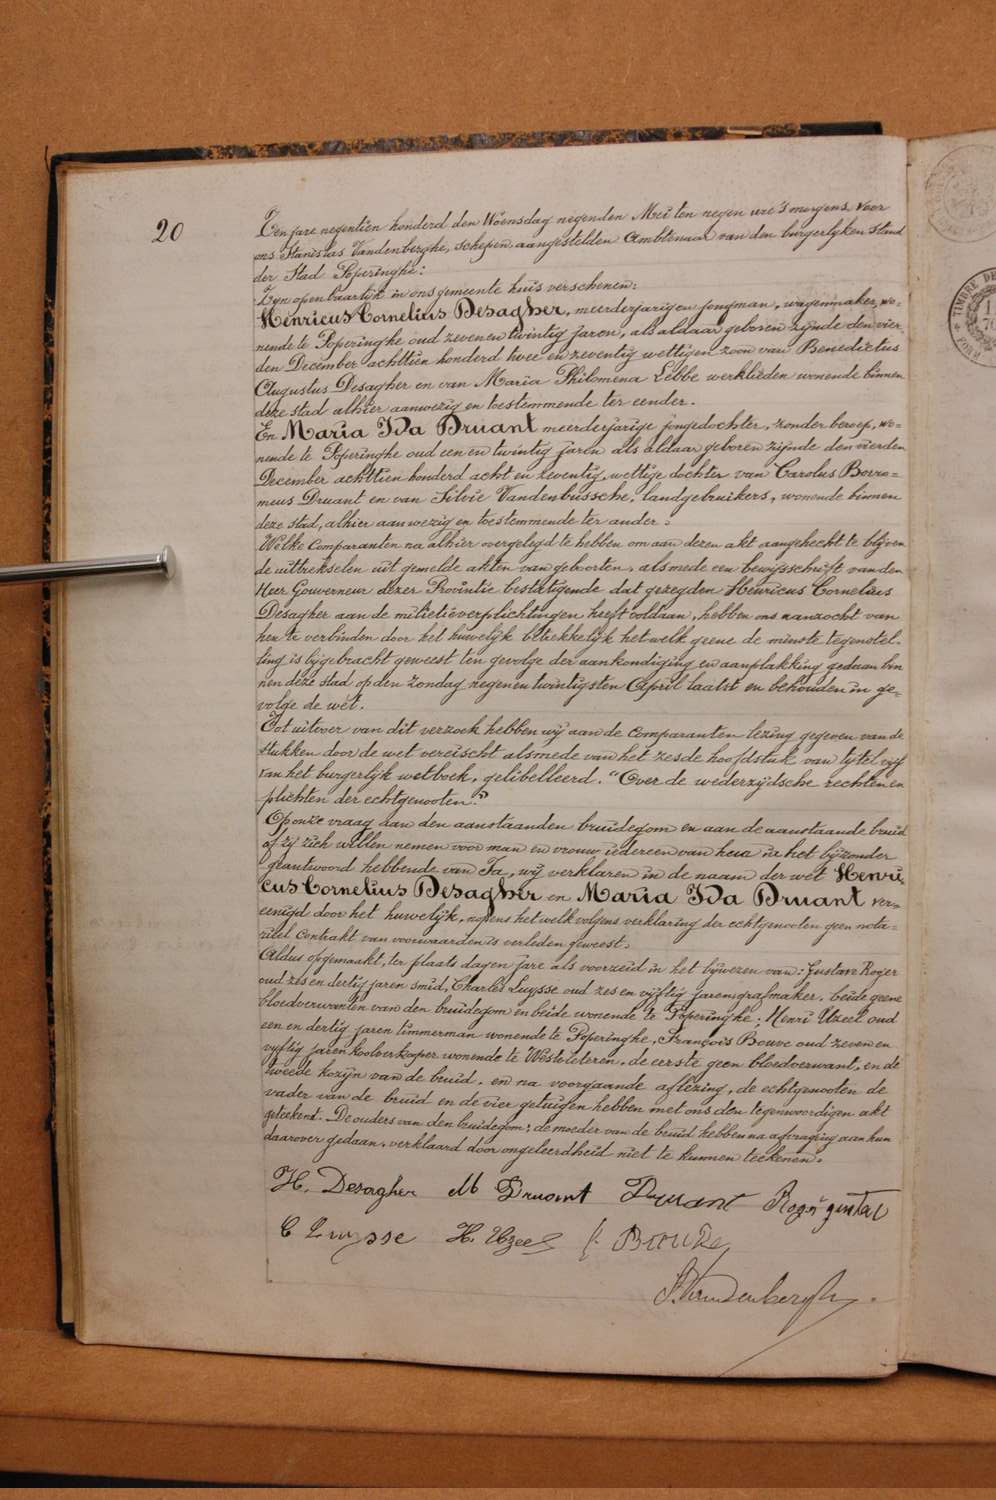 20
Ten jare negentien honderd den Woensdag negenden Mei ten negen ure 's morgens. Voor
ons Stanislas Vandenberghe, Schepen aangestelden Ambtenaar van den burgerlyken stand
der Stad Poperinghe:
Zyn openbaarlijk in ons gemeente huis verschenen:
Henricus Cornelius Desagher, meerderjarigen jongman, wagenmaker, wo=
nende te Poperinghe oud zeven en twintig jaren, als aldaar geboren zijnde den vier
den December achttien honderd twee en zeventig wettigen zoon van Benedictus
Augustus Desagher en van Maria Philomena Lebbe werklieden wonende binnen
deze stad alhier aanwezig en toestemmende ter eender.
En Maria Ida Druant meerderjarige jongedochter, zonder beroep, wo=
nende te Poperinghe oud een en twintig jaren als aldaar geboren zijnde den vierden
December achttien honderd acht en zeventig, wettige dochter van Carolus Borro=
meus Druant en van Silvie Vandenbussche, landgebruikers, wonende binnen
deze stad, alhier aanwezig en toestemmende ter ander:
Welke Comparanten na alhier overgelegd te hebben om aan dezen akt aangehecht te blijven
de uittrekselen uit gemelde akten van geboorten, alsmede een bewijsschrift van den
Heer Gouverneur dezer Provintie bestatigende dat gezegden Henricus Cornelius
Desagher aan de militieverplichtingen heeft voldaan, hebben ons aanzocht van
hen te verbinden door het huwelijk betrekkelijk het welk geene de minste tegenstel-
ling is bijgebracht geweest ten gevolge der aankondiging en aanplakking gedaan bin
nen deze stad op den Zondag negen en twintigsten April laatst en behouden in ge-
volge de wet.
Tot uitvoer van dit verzoek hebben wij aan de Comparanten lezing gegeven van de
stukken door de wet vereischt alsmede van het zesde hoofdstuk van tytel vijf
van het burgerlijk wetboek, gelibelleerd. "Over de wederzijdsche rechten en
plichten der echtgenooten."
Op onze vraag aan den aanstaanden bruidegom en aan de aanstaande bruid
of zij zich willen nemen voor man en vrouw, iedereen van hen in het bijzonder
geantwoord hebbende van Ja, wij verklaren in de naam der wet Henri-
cus Cornelius Desagher en Maria Ida Druant ver=
eenigd door het huwelijk, nopens het welk volgens verklaring der echtgenooten geen nota=
rieel Contrakt van voorwaarden is verleden geweest.
Aldus opgemaakt, ter plaats dag en jare als voorzeid in het bijwezen van: Gustave Roger
oud zes en dertig jaren smid, Charles Luysse oud zes en vijftig jaren grafmaker, beide geene
bloedverwanten van den bruidegom en beide wonende te Poperinghe; Henri Uzeel oud
een en dertig jaren timmerman wonende te Poperinghe, François Bouve oud zeven en
vijftig jaren koolverkooper wonende te Westvleteren, de eerste geen bloedverwant, en de
tweede kozijn van de bruid. en na voorgaande aflezing, de echtgenooten de
vader van de bruid en de vier getuigen hebben met ons den tegenwoordigen akt
geteekend. De ouders van den bruidegom; de moeder van de bruid hebben na afvraging aan hun
daarover gedaan, verklaard door ongeleerdheid niet te kunnen teekenen.
H. Desagher M Druant Druant Roger gustav
C Luysse H. Uzeel f. Bouve
S. Vandenberghe
TIMBRE DE